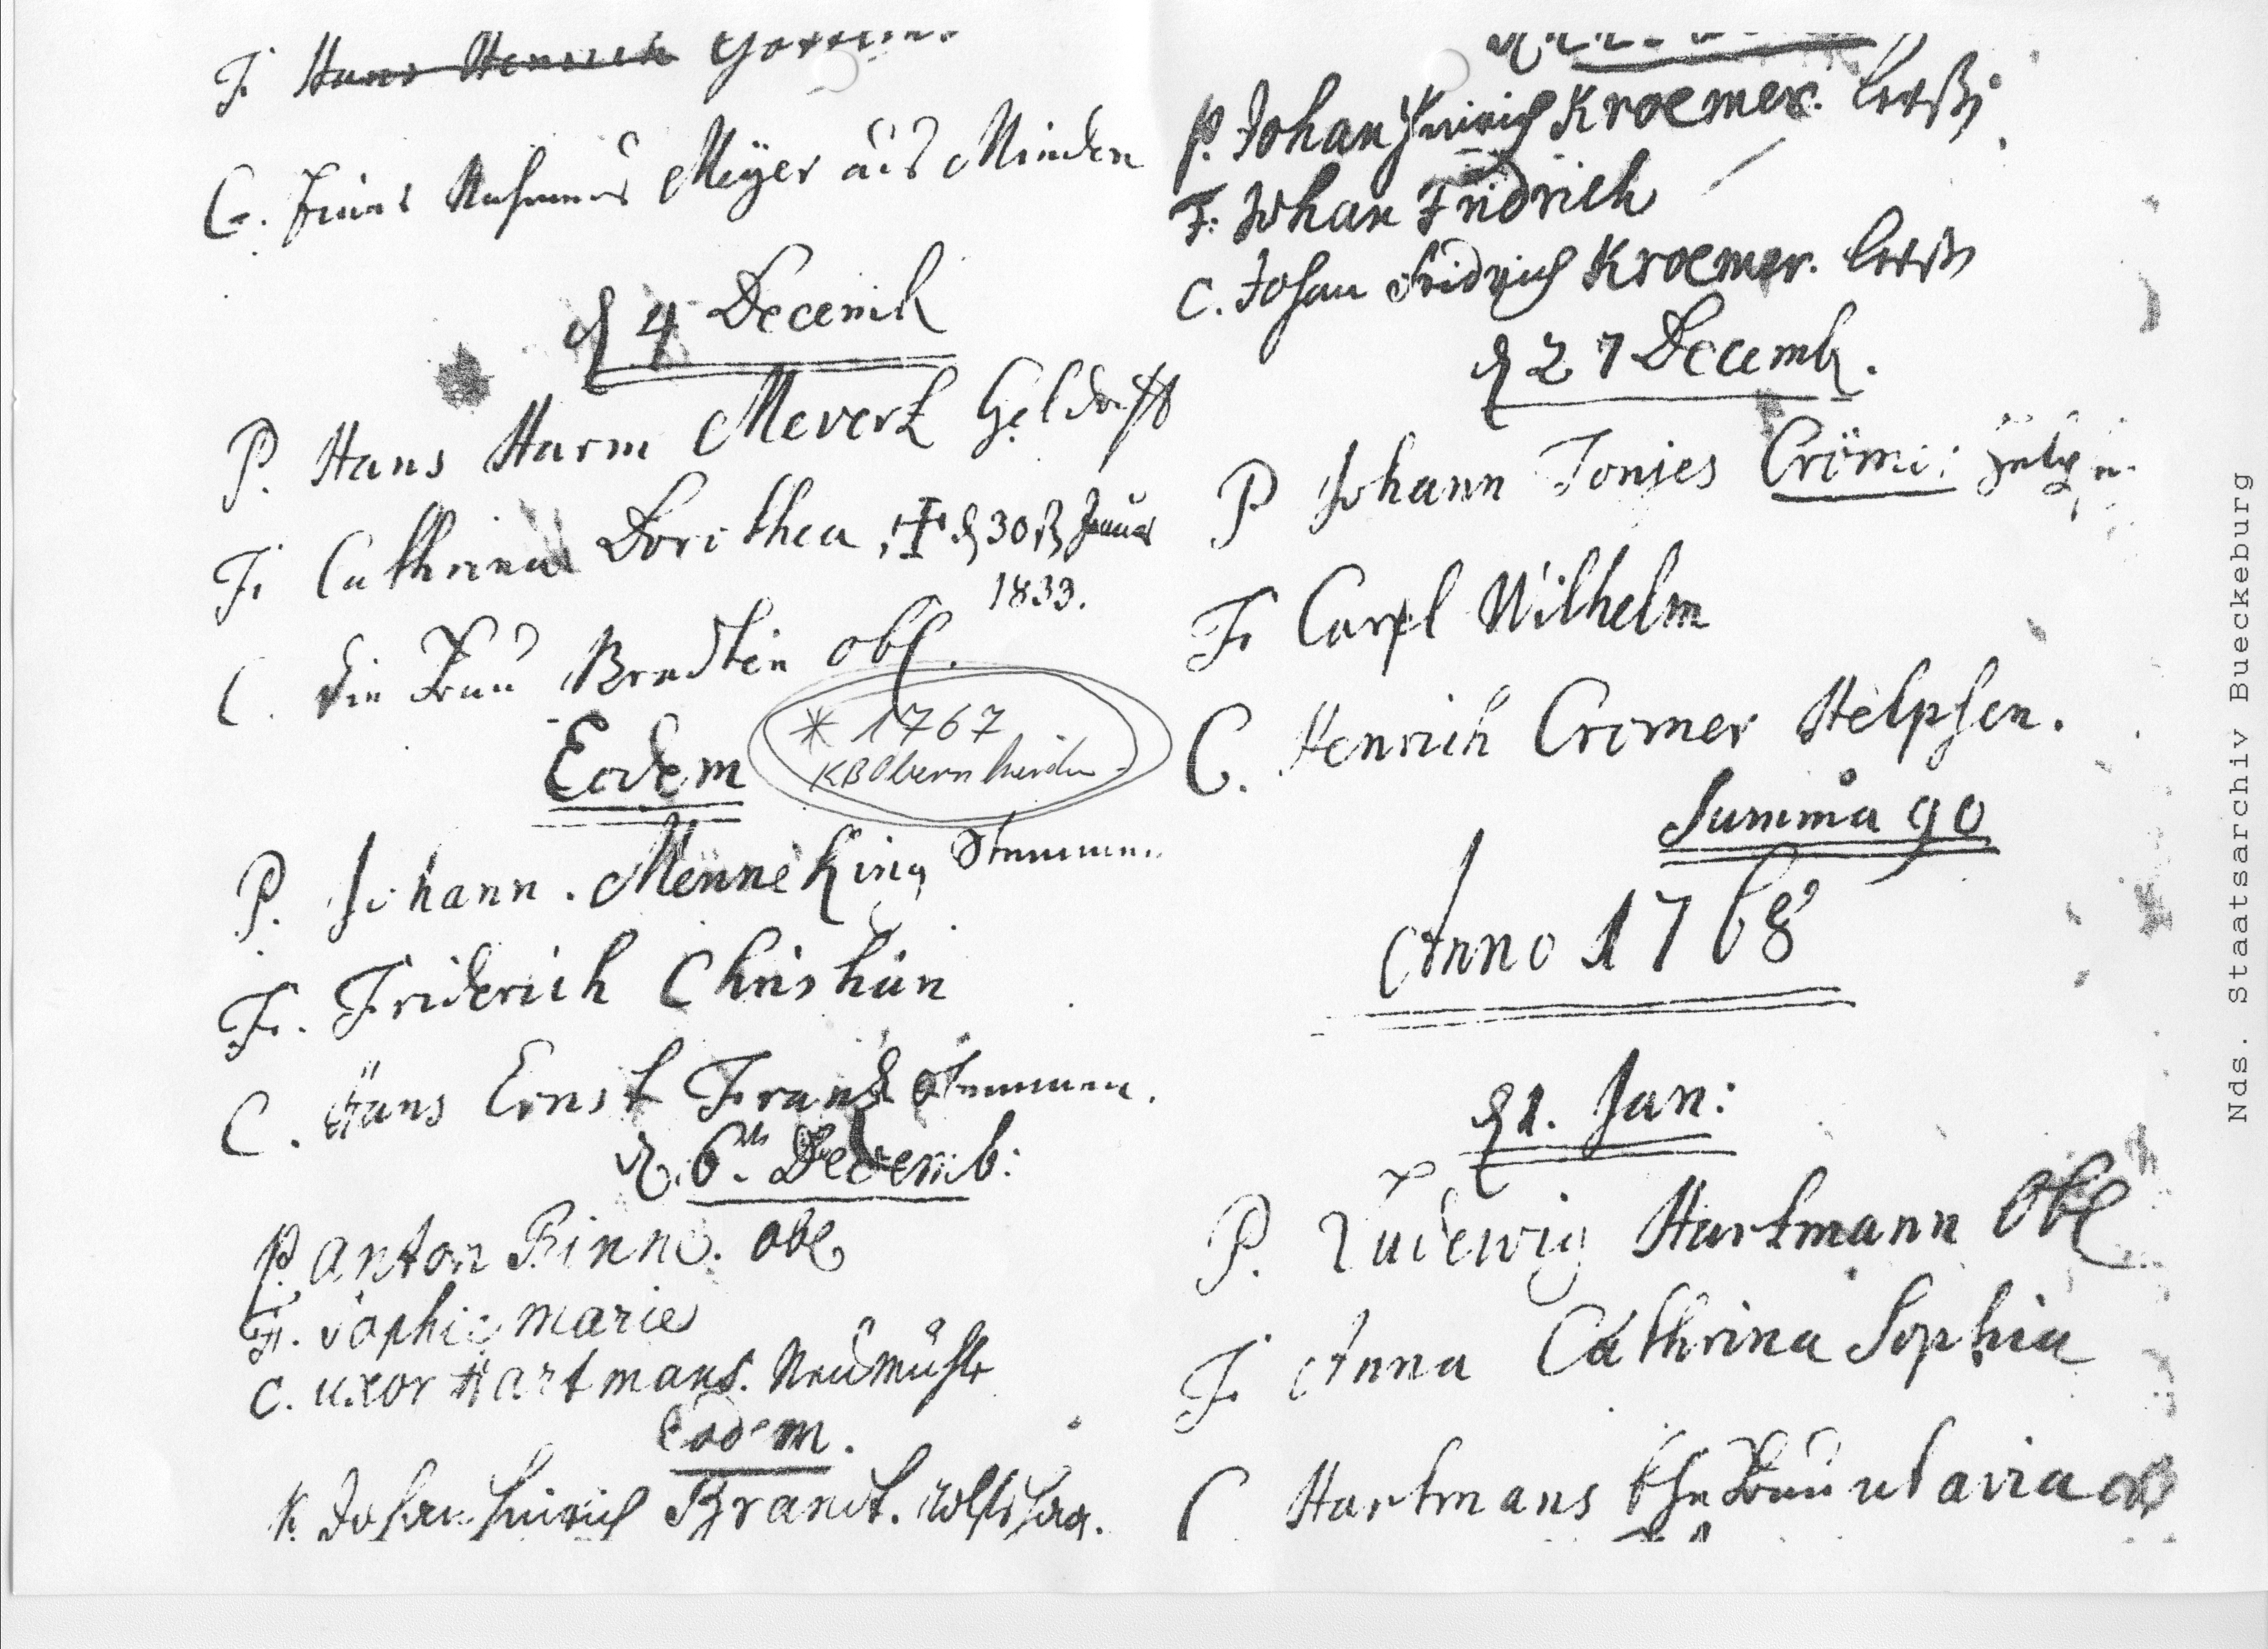 F. Hans Henrich
C. Meyer aus Minden
d 4 Decemb
P. Hans Harm Mevert Geldorff
F. Cathrina Dorithea, † d 30 Januar
1833.
C. die Frau Bradtin obl.
Eodem
* 1767
KB Obernkirchen
P. Johann Menneking Stemmen.
F. Friderich Christian
C. Hans Ernst Frank Stemmen.
d. 6ten Decemb:
P. Anton Rinne. obl
F. Sophie Marie
C. uxor Hartmans. Neumühle
Eodem.
P. Johan Hinrich Brandt.
P. Johan Hinrich Kroemer.
F. Johan Fridrich
C. Johan Fridrich Kroemer.
d 27 Decemb.
P Johann Tonjes Crömer:
F. Carl Wilhelm
C. Henrich Cromer Helpsen.
Summa 90
Anno 1768
d 1. Jan:
P. Ludewig Hartmann Obl
F. Anna Cathrina Sophia
C Hartmans Frau ut avia
Nds. Staatsarchiv Bueckeburg